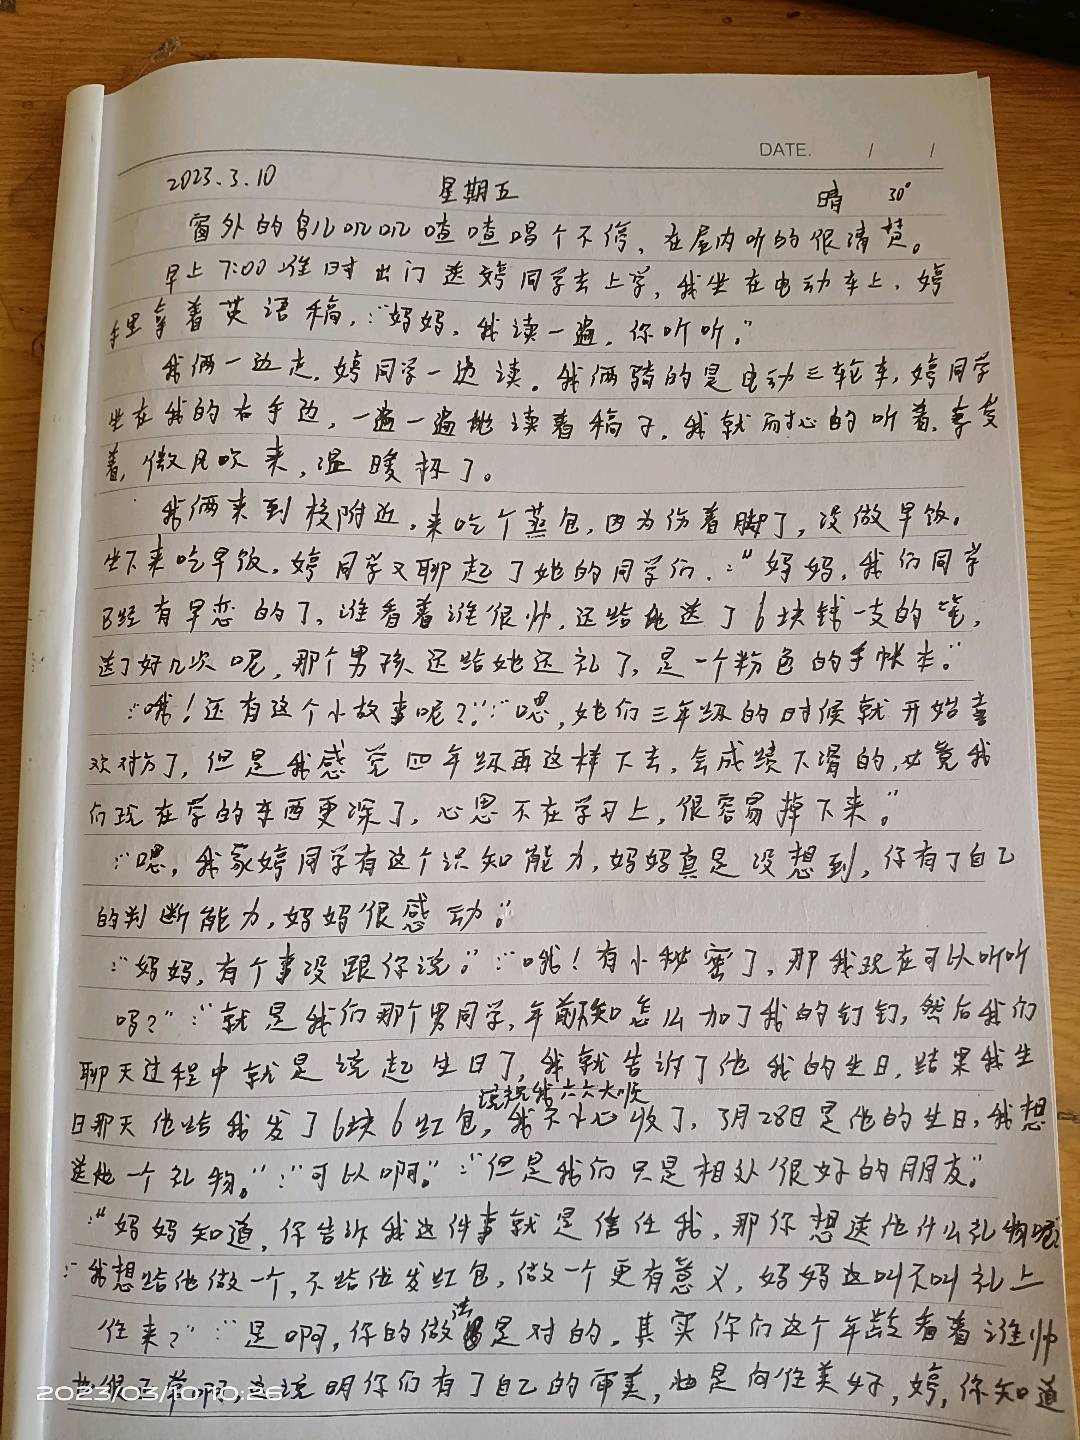 DATE. / /
2023.3.10 星期五 晴 30°
窗外的鸟儿叽叽喳喳唱个不停，在屋内听的很清楚。
早上7:00准时出门送婷同学去上学，我坐在电动车上，婷
手里拿着英语稿，:“妈妈，我读一遍，你听听。”
我俩一边走，婷同学一边读。我俩骑的是电动三轮车，婷同学
坐在我的右手边，一遍一遍地读着稿子，我就耐心的听着，享受
着，微风吹来，温暖极了。
我俩来到校附近，来吃个蒸包，因为伤着脚了，没做早饭。
坐下来吃早饭，婷同学又聊起了她的同学们，:“妈妈，我们同学
已经有早恋的了，谁看着谁很帅，还给他送了6块钱一支的笔，
送了好几次呢，那个男孩还给她还礼了，是一个粉色的手帐本。”
:“哦！还有这个小故事呢？”:“嗯，她们三年级的时候就开始喜
欢对方了，但是我感觉四年级再这样下去，会成绩下滑的，必竟我
们现在学的东西更深了，心思不在学习上，很容易掉下来。”
:“嗯，我家婷同学有这个识知能力，妈妈真是没想到，你有了自己
的判断能力，妈妈很感动。”
:“妈妈，有个事没跟你说。”:“哦！有小秘密了，那我现在可以听听
吗？”:“就是我们那个男同学，年前不知怎么加了我的钉钉，然后我们
聊天过程中就是说起生日了，我就告诉了他我的生日，结果我生
说祝我六六大顺
日那天他给我发了6块6红包，我不小心收了，3月28日是他的生日，我想
送他一个礼物。”:“可以啊。”:“但是我们只是相处很好的朋友。”
:“妈妈知道，你告诉我这件事就是信任我，那你想送他什么礼物呢？
:“我想给他做一个，不给他发红包，做一个更有意义，妈妈这叫不叫礼上
往来？”:“是啊，你的做法是对的，其实你们这个年龄看着谁帅
也很正常啊，这说明你们有了自己的审美，也是向往美好，婷，你知道
2023/03/10 10:26